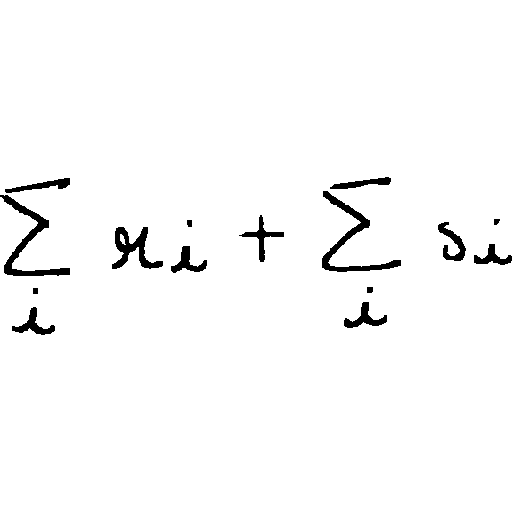 \sum_{i} r_i + \sum_{i} s_i